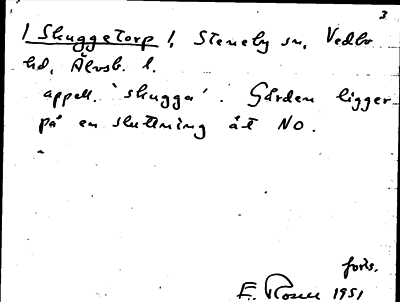 3
/ Skuggetorp /, Steneby sn, Vedbo
hd, Älvsb. l.
appell. 'skugga'. Gården ligger
på en sluttning åt NO.
forts.
E. Rosell 1951